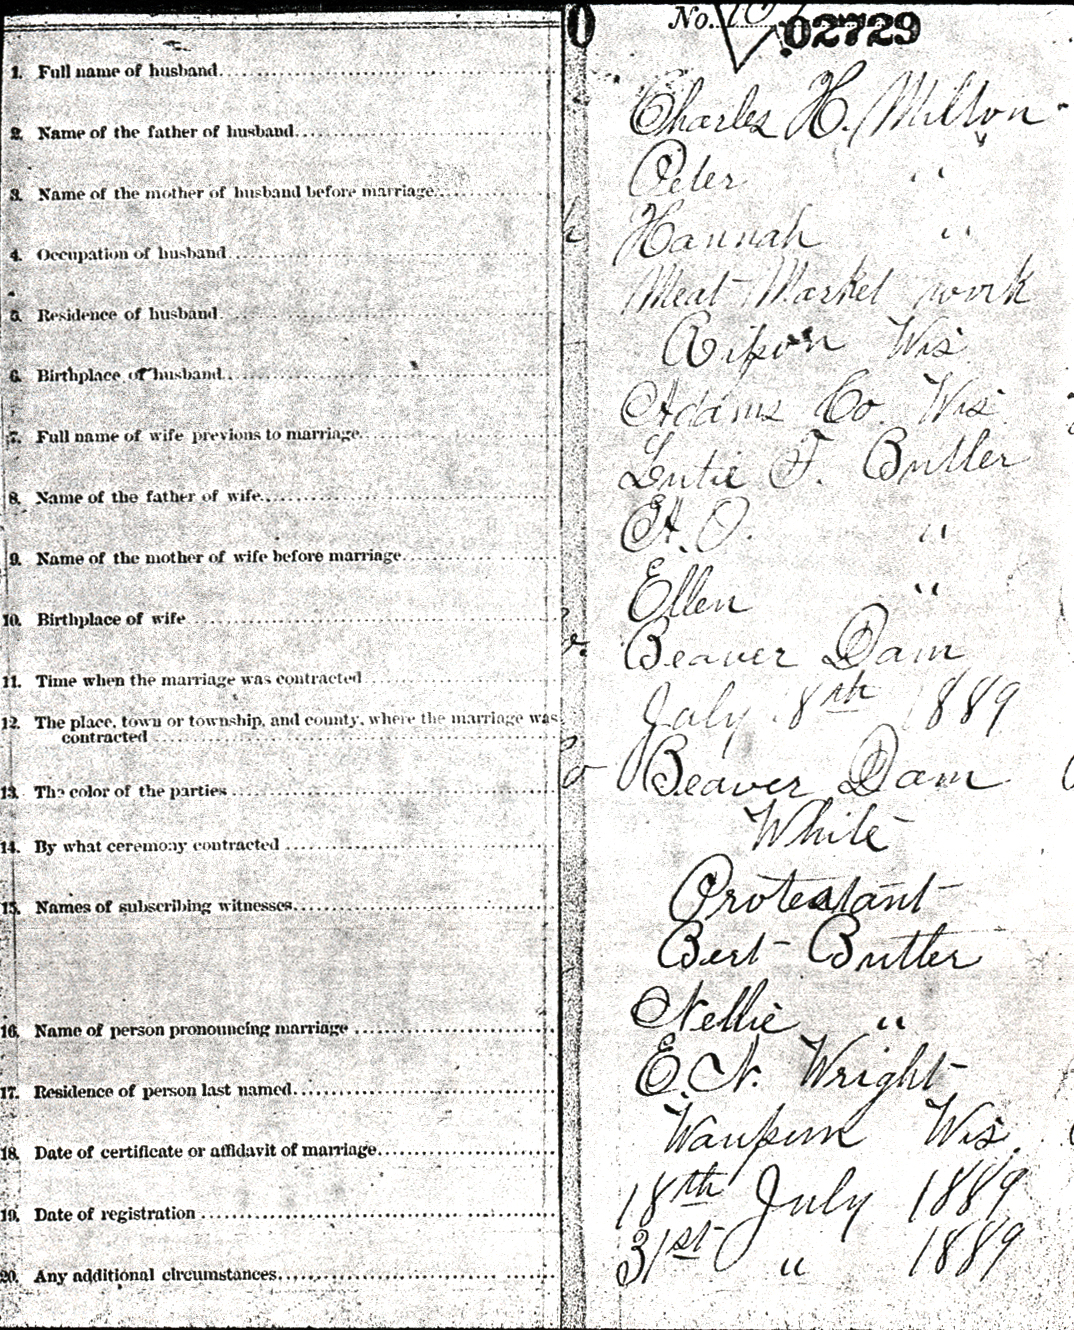 0 No. 02729
1. Full name of husband
Charles H. Milton
2. Name of the father of husband
Peter "
3. Name of the mother of husband before marriage
Hannah "
4. Occupation of husband
Meat Market work
5. Residence of husband
Ripon Wis
6. Birthplace of husband
Adams Co. Wis
7. Full name of wife previous to marriage
Lutie F. Butler
8. Name of the father of wife
H. O. "
9. Name of the mother of wife before marriage
Ellen "
10. Birthplace of wife
Beaver Dam
11. Time when the marriage was contracted
July 8th 1889
12. The place, town or township, and county, where the marriage was
contracted
Beaver Dam
13. The color of the parties
White
14. By what ceremony contracted
Protestant
15. Names of subscribing witnesses
Bert Butler
Nellie "
16. Name of person pronouncing marriage
E. N. Wright
17. Residence of person last named
Waupun Wis
18. Date of certificate or affidavit of marriage
18th July 1889
19. Date of registration
31st " 1889
20. Any additional circumstances